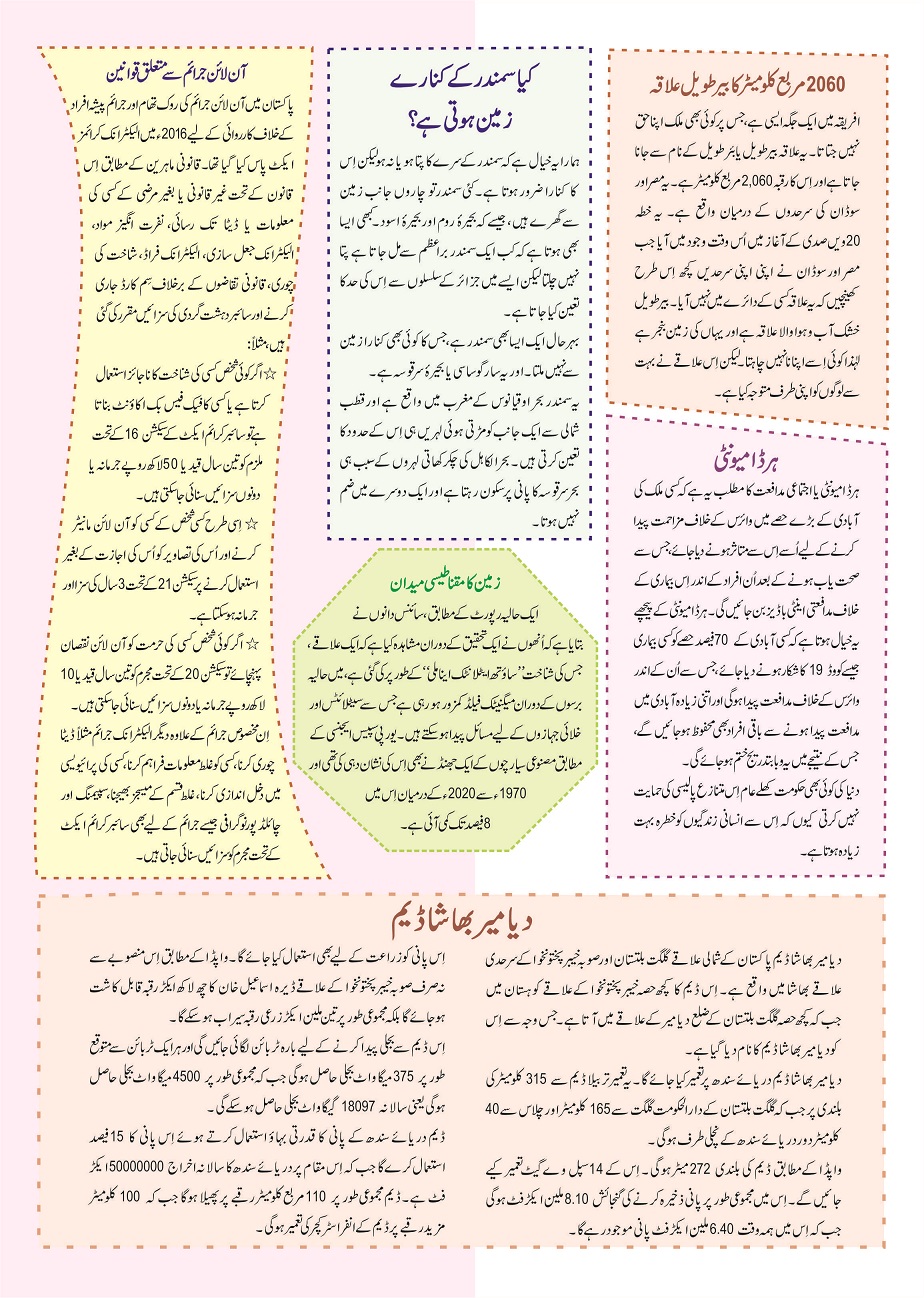 2060 مربع کلومیٹر کا بیر طویل علاقہ
افریقہ میں ایک جگہ ایسی ہے، جس پر کوئی بھی ملک اپنا حق
نہیں جتاتا۔ یہ علاقہ بیر طویل یا بئر طویل کے نام سے جانا
جاتا ہے اور اِس کا رقبہ 2,060 مربع کلومیٹر ہے۔ یہ مصر اور
سوڈان کی سرحدوں کے درمیان واقع ہے۔ یہ خطہ
20ویں صدی کے آغاز میں اُس وقت وجود میں آیا جب
مصر اور سوڈان نے اپنی اپنی سرحدیں کچھ اِس طرح
کھینچیں کہ یہ علاقہ کسی کے دائرے میں نہیں آیا۔ بیر طویل
خشک آب و ہوا والا علاقہ ہے اور یہاں کی زمین بنجر ہے
لہٰذا کوئی اِسے اپنانا نہیں چاہتا۔ لیکن اِس علاقے نے بہت
سے لوگوں کو اپنی طرف متوجہ کیا ہے۔
ہرڈ امیونٹی
ہرڈ امیونٹی یا اجتماعی مدافعت کا مطلب یہ ہے کہ کسی ملک کی
آبادی کے بڑے حصے میں وائرس کے خلاف مزاحمت پیدا
کرنے کے لیے اُسے اِس سے متاثر ہونے دیا جائے، جس سے
صحت یاب ہونے کے بعد اُن افراد کے اندر اِس بیماری کے
خلاف مدافعتی اینٹی باڈیز بن جائیں گی۔ ہرڈ امیونٹی کے پیچھے
یہ خیال ہوتا ہے کہ کسی آبادی کے 70 فیصد حصے کو کسی بیماری
جیسے کووڈ 19 کا شکار ہونے دیا جائے، جس سے اُن کے اندر
وائرس کے خلاف مدافعت پیدا ہوگی اور اتنی زیادہ آبادی میں
مدافعت پیدا ہونے سے باقی افراد بھی محفوظ ہو جائیں گے،
جس کے نتیجے میں یہ وبا بتدریج ختم ہو جائے گی۔
دنیا کی کوئی بھی حکومت کھلے عام اِس متنازع پالیسی کی حمایت
نہیں کرتی کیوں کہ اِس سے انسانی زندگیوں کو خطرہ بہت
زیادہ ہوتا ہے۔
کیا سمندر کے کنارے
زمین ہوتی ہے؟
ہمارا یہ خیال ہے کہ سمندر کے سرے کا پتا ہو یا نہ ہو لیکن اِس
کا کنارا ضرور ہوتا ہے۔ کئی سمندر تو چاروں جانب زمین
سے گھرے ہیں، جیسے کہ بحیرۂ روم اور بحیرۂ اسود۔ کبھی ایسا
بھی ہوتا ہے کہ کب ایک سمندر براعظم سے مل جاتا ہے پتا
نہیں چلتا لیکن ایسے میں جزائر کے سلسلوں سے اِس کی حد کا
تعین کیا جاتا ہے۔
بہر حال ایک ایسا بھی سمندر ہے، جس کا کوئی بھی کنارا زمین
سے نہیں ملتا۔ اور یہ سارگوساسی یا بحیرۂ سرقوسہ ہے۔
یہ سمندر بحر اوقیانوس کے مغرب میں واقع ہے اور قطب
شمالی سے ایک جانب کو مڑتی ہوئی لہریں ہی اِس کے حدود کا
تعین کرتی ہیں۔ بحرالکاہل کی چکر کھاتی لہروں کے سبب ہی
بحر سرقوسہ کا پانی پرسکون رہتا ہے اور ایک دوسرے میں ضم
نہیں ہوتا۔
زمین کا مقناطیسی میدان
ایک حالیہ رپورٹ کے مطابق، سائنس دانوں نے
بتایا ہے کہ اُنھوں نے ایک تحقیق کے دوران مشاہدہ کیا ہے کہ ایک علاقے،
جس کی شناخت ’’ساؤتھ ایٹلانٹک اینا ملی‘‘ کے طور پر کی گئی ہے، میں حالیہ
برسوں کے دوران میگنیٹک فیلڈ کمزور ہو رہی ہے جس سے سیٹلائٹس اور
خلائی جہازوں کے لیے مسائل پیدا ہو سکتے ہیں۔ یورپی سپیس ایجنسی کے
مطابق مصنوعی سیارچوں کے ایک جھنڈ نے بھی اِس کی نشان دہی کی تھی اور
1970ء سے 2020ء کے درمیان اِس میں
8 فیصد تک کمی آئی ہے۔
آن لائن جرائم سے متعلق قوانین
پاکستان میں آن لائن جرائم کی روک تھام اور جرائم پیشہ افراد
کے خلاف کارروائی کے لیے 2016ء میں الیکٹرانک کرائمز
ایکٹ پاس کیا گیا تھا۔ قانونی ماہرین کے مطابق اِس
قانون کے تحت غیر قانونی یا بغیر مرضی کے کسی کی
معلومات یا ڈیٹا تک رسائی، نفرت انگیز مواد،
الیکٹرانک جعل سازی، الیکٹرانک فراڈ، شناخت کی
چوری، قانونی تقاضوں کے برخلاف سِم کارڈ جاری
کرنے اور سائبر دہشت گردی کی سزائیں مقرر کی گئی
ہیں، مثلاً:
☆ اگر کوئی شخص کسی کی شناخت کا ناجائز استعمال
کرتا ہے یا کسی کا فیک فیس بک اکاؤنٹ بناتا
ہے تو سائبر کرائم ایکٹ کے سیکشن 16 کے تحت
ملزم کو تین سال قید یا 50 لاکھ روپے جرمانہ یا
دونوں سزائیں سنائی جا سکتی ہیں۔
☆ اِسی طرح کسی شخص کے کسی کو آن لائن مانیٹر
کرنے اور اُس کی تصاویر کو اُس کی اجازت کے بغیر
استعمال کرنے پر سیکشن 21 کے تحت 3 سال کی سزا اور
جرمانہ ہو سکتا ہے۔
☆ اگر کوئی شخص کسی کی حرمت کو آن لائن نقصان
پہنچائے تو سیکشن 20 کے تحت مجرم کو تین سال قید یا 10
لاکھ روپے جرمانہ یا دونوں سزائیں سنائی جا سکتی ہیں۔
اِن مخصوص جرائم کے علاوہ دیگر الیکٹرانک جرائم مثلاً ڈیٹا
چوری کرنا، کسی کو غلط معلومات فراہم کرنا، کسی کی پرائیویسی
میں دخل اندازی کرنا، غلط قسم کے میسجز بھیجنا، سپیمنگ اور
چائلڈ پورنوگرافی جیسے جرائم کے لیے بھی سائبر کرائم ایکٹ
کے تحت مجرم کو سزائیں سنائی جاتی ہیں۔
دیامیر بھاشا ڈیم
دیامیر بھاشا ڈیم پاکستان کے شمالی علاقے گلگت بلتستان اور صوبہ خیبر پختونخوا کے سرحدی
علاقے بھاشا میں واقع ہے۔ اِس ڈیم کا کچھ حصہ خیبر پختونخوا کے علاقے کوہستان میں
جب کہ کچھ حصہ گلگت بلتستان کے ضلع دیامیر کے علاقے میں آتا ہے۔ جس وجہ سے اِس
کو دیامیر بھاشا ڈیم کا نام دیا گیا ہے۔
دیامیر بھاشا ڈیم دریائے سندھ پر تعمیر کیا جائے گا۔ یہ تعمیر تربیلا ڈیم سے 315 کلومیٹر کی
بلندی پر جب کہ گلگت بلتستان کے دارالحکومت گلگت سے 165 کلومیٹر اور چلاس سے 40
کلومیٹر دور دریائے سندھ کے نچلی طرف ہوگی۔
واپڈا کے مطابق ڈیم کی بلندی 272 میٹر ہوگی۔ اِس کے 14 سپل وے گیٹ تعمیر کیے
جائیں گے۔ اِس میں مجموعی طور پر پانی ذخیرہ کرنے کی گنجائش 8.10 ملین ایکڑ فٹ ہوگی
جب کہ اِس میں ہمہ وقت 6.40 ملین ایکڑ فٹ پانی موجود رہے گا۔
اِس پانی کو زراعت کے لیے بھی استعمال کیا جائے گا۔ واپڈا کے مطابق اِس منصوبے سے
نہ صرف صوبہ خیبر پختونخوا کے علاقے ڈیرہ اسماعیل خان کا چھ لاکھ ایکڑ رقبہ قابل کاشت
ہو جائے گا بلکہ مجموعی طور پر تین ملین ایکڑ زرعی رقبہ سیراب ہو سکے گا۔
اِس ڈیم سے بجلی پیدا کرنے کے لیے بارہ ٹربائن لگائی جائیں گی اور ہر ایک ٹربائن سے متوقع
طور پر 375 میگا واٹ بجلی حاصل ہوگی جب کہ مجموعی طور پر 4500 میگا واٹ بجلی حاصل
ہوگی یعنی سالانہ 18097 گیگا واٹ بجلی حاصل ہو سکے گی۔
ڈیم دریائے سندھ کے پانی کا قدرتی بہاؤ استعمال کرتے ہوئے اِس پانی کا 15 فیصد
استعمال کرے گا جب کہ اِس مقام پر دریائے سندھ کا سالانہ اخراج 50000000 ایکڑ
فٹ ہے۔ ڈیم مجموعی طور پر 110 مربع کلومیٹر رقبے پر پھیلا ہوگا جب کہ 100 کلومیٹر
مزید رقبے پر ڈیم کے انفراسٹرکچر کی تعمیر ہوگی۔